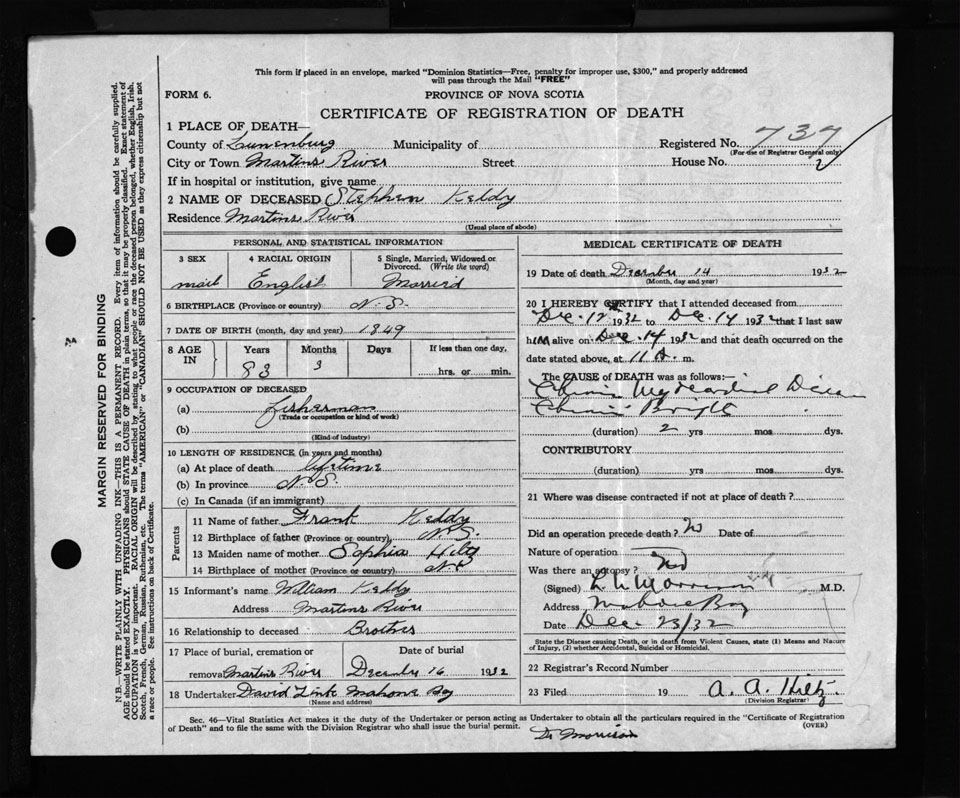 This form if placed in an envelope, marked "Dominion Statistics—Free, penalty for improper use, $300," and properly addressed
will pass through the Mail "FREE"
FORM 6.
PROVINCE OF NOVA SCOTIA
CERTIFICATE OF REGISTRATION OF DEATH
1 PLACE OF DEATH—
County of Lunenburg Municipality of Registered No. 737
(For use of Registrar General only)
City or Town Martins River Street House No.
If in hospital or institution, give name
2 NAME OF DECEASED Stephen Keddy
Residence Martins River
(Usual place of abode)
PERSONAL AND STATISTICAL INFORMATION
3 SEX
mail
4 RACIAL ORIGIN
English
5 Single, Married, Widowed or
Divorced. (Write the word)
Married
6 BIRTHPLACE (Province or country) N. S.
7 DATE OF BIRTH (month, day and year) 1849
8 AGE IN
Years Months Days If less than one day,
83 3 hrs. or min.
9 OCCUPATION OF DECEASED
(a) fisherman
(Trade or occupation or kind of work)
(b)
(Kind of industry)
10 LENGTH OF RESIDENCE (in years and months)
(a) At place of death lifetime
(b) In province N. S.
(c) In Canada (if an immigrant)
Parents
11 Name of father Frank Keddy
12 Birthplace of father (Province or country) N. S.
13 Maiden name of mother Sophia Hiltz
14 Birthplace of mother (Province or country) N S
15 Informant's name William Keddy
Address Martins River
16 Relationship to deceased Brother
17 Place of burial, cremation or Date of burial
removal Martins River December 16 1932
18 Undertaker David Link Mahone Bay
(Name and address)
MEDICAL CERTIFICATE OF DEATH
19 Date of death December 14 1932
(Month, day and year)
20 I HEREBY CERTIFY that I attended deceased from
Dec. 12 1932 to Dec. 14 1932 that I last saw
him alive on Dec. 14 1932 and that death occurred on the
date stated above, at 11 A. m.
The CAUSE of DEATH was as follows:—
Chronic Myocardial Disease
Chronic Brights
(duration) 2 yrs mos. dys.
CONTRIBUTORY
(duration) yrs mos dys.
21 Where was disease contracted if not at place of death?
Did an operation precede death? No Date of
Nature of operation
Was there an autopsy? No
(Signed) Morrison M.D.
Address Mahone Bay
Date Dec 23/32
State the Disease causing Death, or in death from Violent Causes, state (1) Means and Nature
of Injury, (2) whether Accidental, Suicidal or Homicidal.
22 Registrar's Record Number
23 Filed 19 A. A. Hiltz
(Division Registrar)
Sec. 46—Vital Statistics Act makes it the duty of the Undertaker or person acting as Undertaker to obtain all the particulars required in the "Certificate of Registration
of Death" and to file the same with the Division Registrar who shall issue the burial permit. (OVER)
Dr Morrison
MARGIN RESERVED FOR BINDING
N.B.—WRITE PLAINLY WITH UNFADING INK—THIS IS A PERMANENT RECORD. Every item of information should be carefully supplied.
AGE should be stated EXACTLY. PHYSICIANS should STATE CAUSE OF DEATH in plain terms, so that it may be properly classified. Exact statement of
OCCUPATION is very important. RACIAL ORIGIN will be described by stating to what people or race the deceased person belonged, whether English, Irish,
Scotch, French, German, Russian, Ruthenian, etc. The terms "AMERICAN" or "CANADIAN" SHOULD NOT BE USED as they express citizenship but not
a race or people. See instructions on back of Certificate.